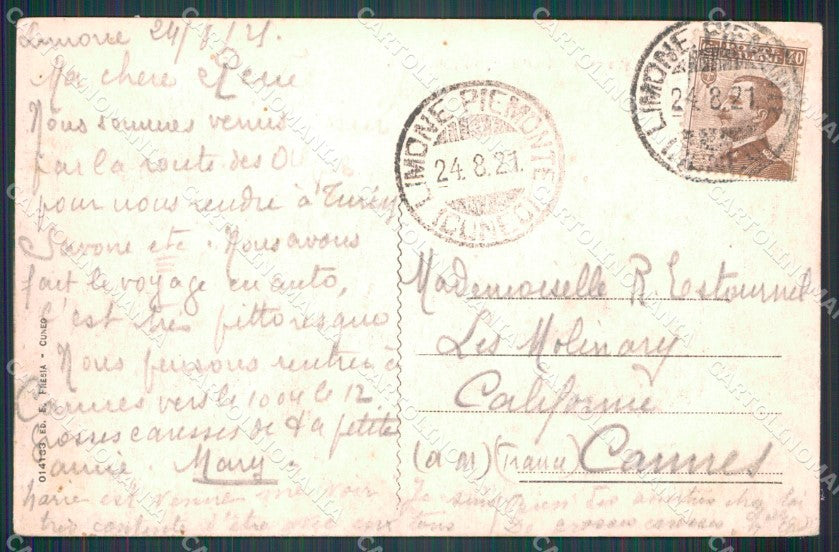 Limone 24/8/21
Ma chère René
Nous sommes venus
par la route des
pour nous rendre à Turin
Savone etc. Nous avons
fait le voyage en auto,
c'est très pittoresque
Nous pensons rentrer à
Cannes vers le 10 ou le 12
Grosses caresses de ta petite
amie. Mary.
LIMONE PIEMONTE
24.8.21.
(CUNEO)
LIMONE PIEMONTE
24.8.21.
40
Mademoiselle R. Estournel
Les Molinary
Californie
(a m) (France) Cannes
014133 ED. E. FRESIA - CUNEO
Marie est venue me voir
très contente d'être avec
Je suis bien
grosses caresses
CARTOLINOMANIA